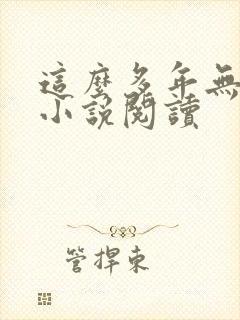 這麼多年無
小說閱讀
管捍東